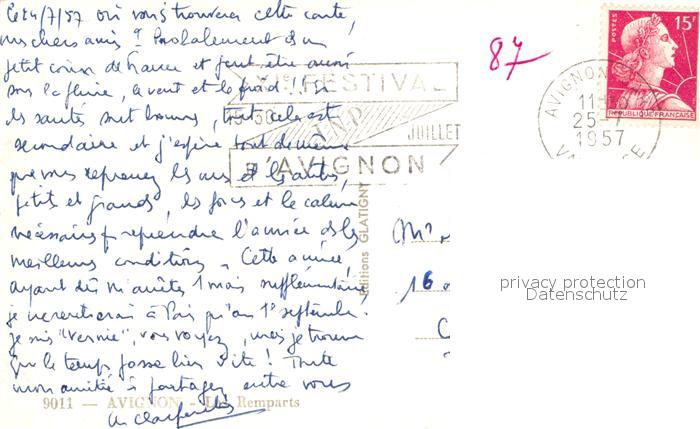 Ce 24/7/57 où vous trouvera cette carte,
mes chers amis ? Probablement en un
petit coin de France et peut être aussi
sous la pluie, le vent et le froid !! Si
les santés sont bonnes, tout cela est
secondaire et j'espère tout de même
que vous reprenez les uns et les autres,
petits et grands, les forces et le calme
nécessaires pr reprendre l'année ds les
meilleures conditions. Cette année,
ayant dû m'arrêter 1 mois supplémentaire,
je ne rentrerai à Paris qu'au 1er septembre.
Je suis "vernie", vous voyez, mais je trouve
que le temps passe bien vite ! Toute
mon amitié à partager entre vous
9011 — AVIGNON - Les Remparts
XIe FESTIVAL
JUILLET
D'AVIGNON
Editions GLATIGNY
87
POSTES
15F
REPUBLIQUE FRANÇAISE
AVIGNON
25-7
1957
VAUCLUSE
16
privacy protection
Datenschutz